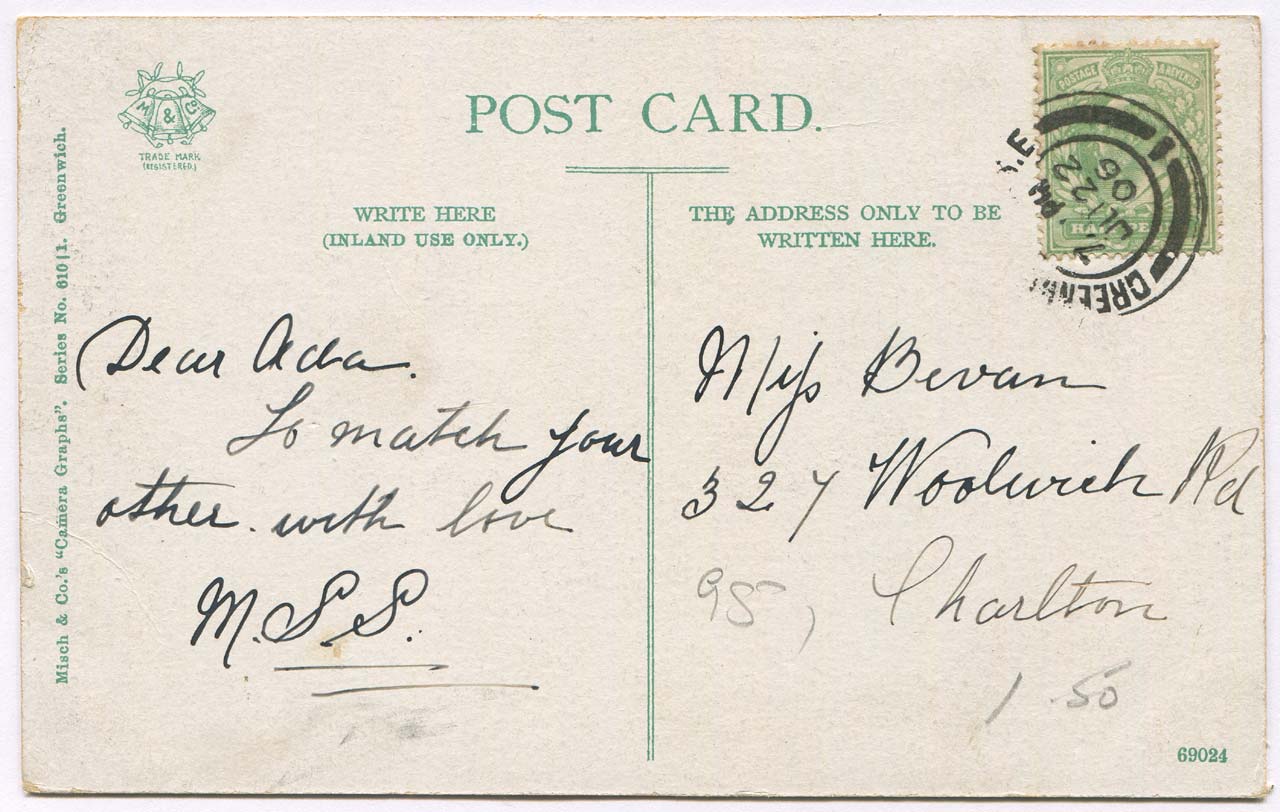 M & Co
TRADE MARK
(REGISTERED.)
POST CARD.
WRITE HERE
(INLAND USE ONLY.)
THE ADDRESS ONLY TO BE
WRITTEN HERE.
POSTAGE & REVENUE
HA
GREEN
S.E
PM
JU 22
06
Misch & Co.'s "Camera Graphs". Series No. 610|1. Greenwich.
Dear Ada.
To match your
other. with love
M.S.S.
Miss Bevan
327 Woolwich Rd
Charlton
1.50
69024